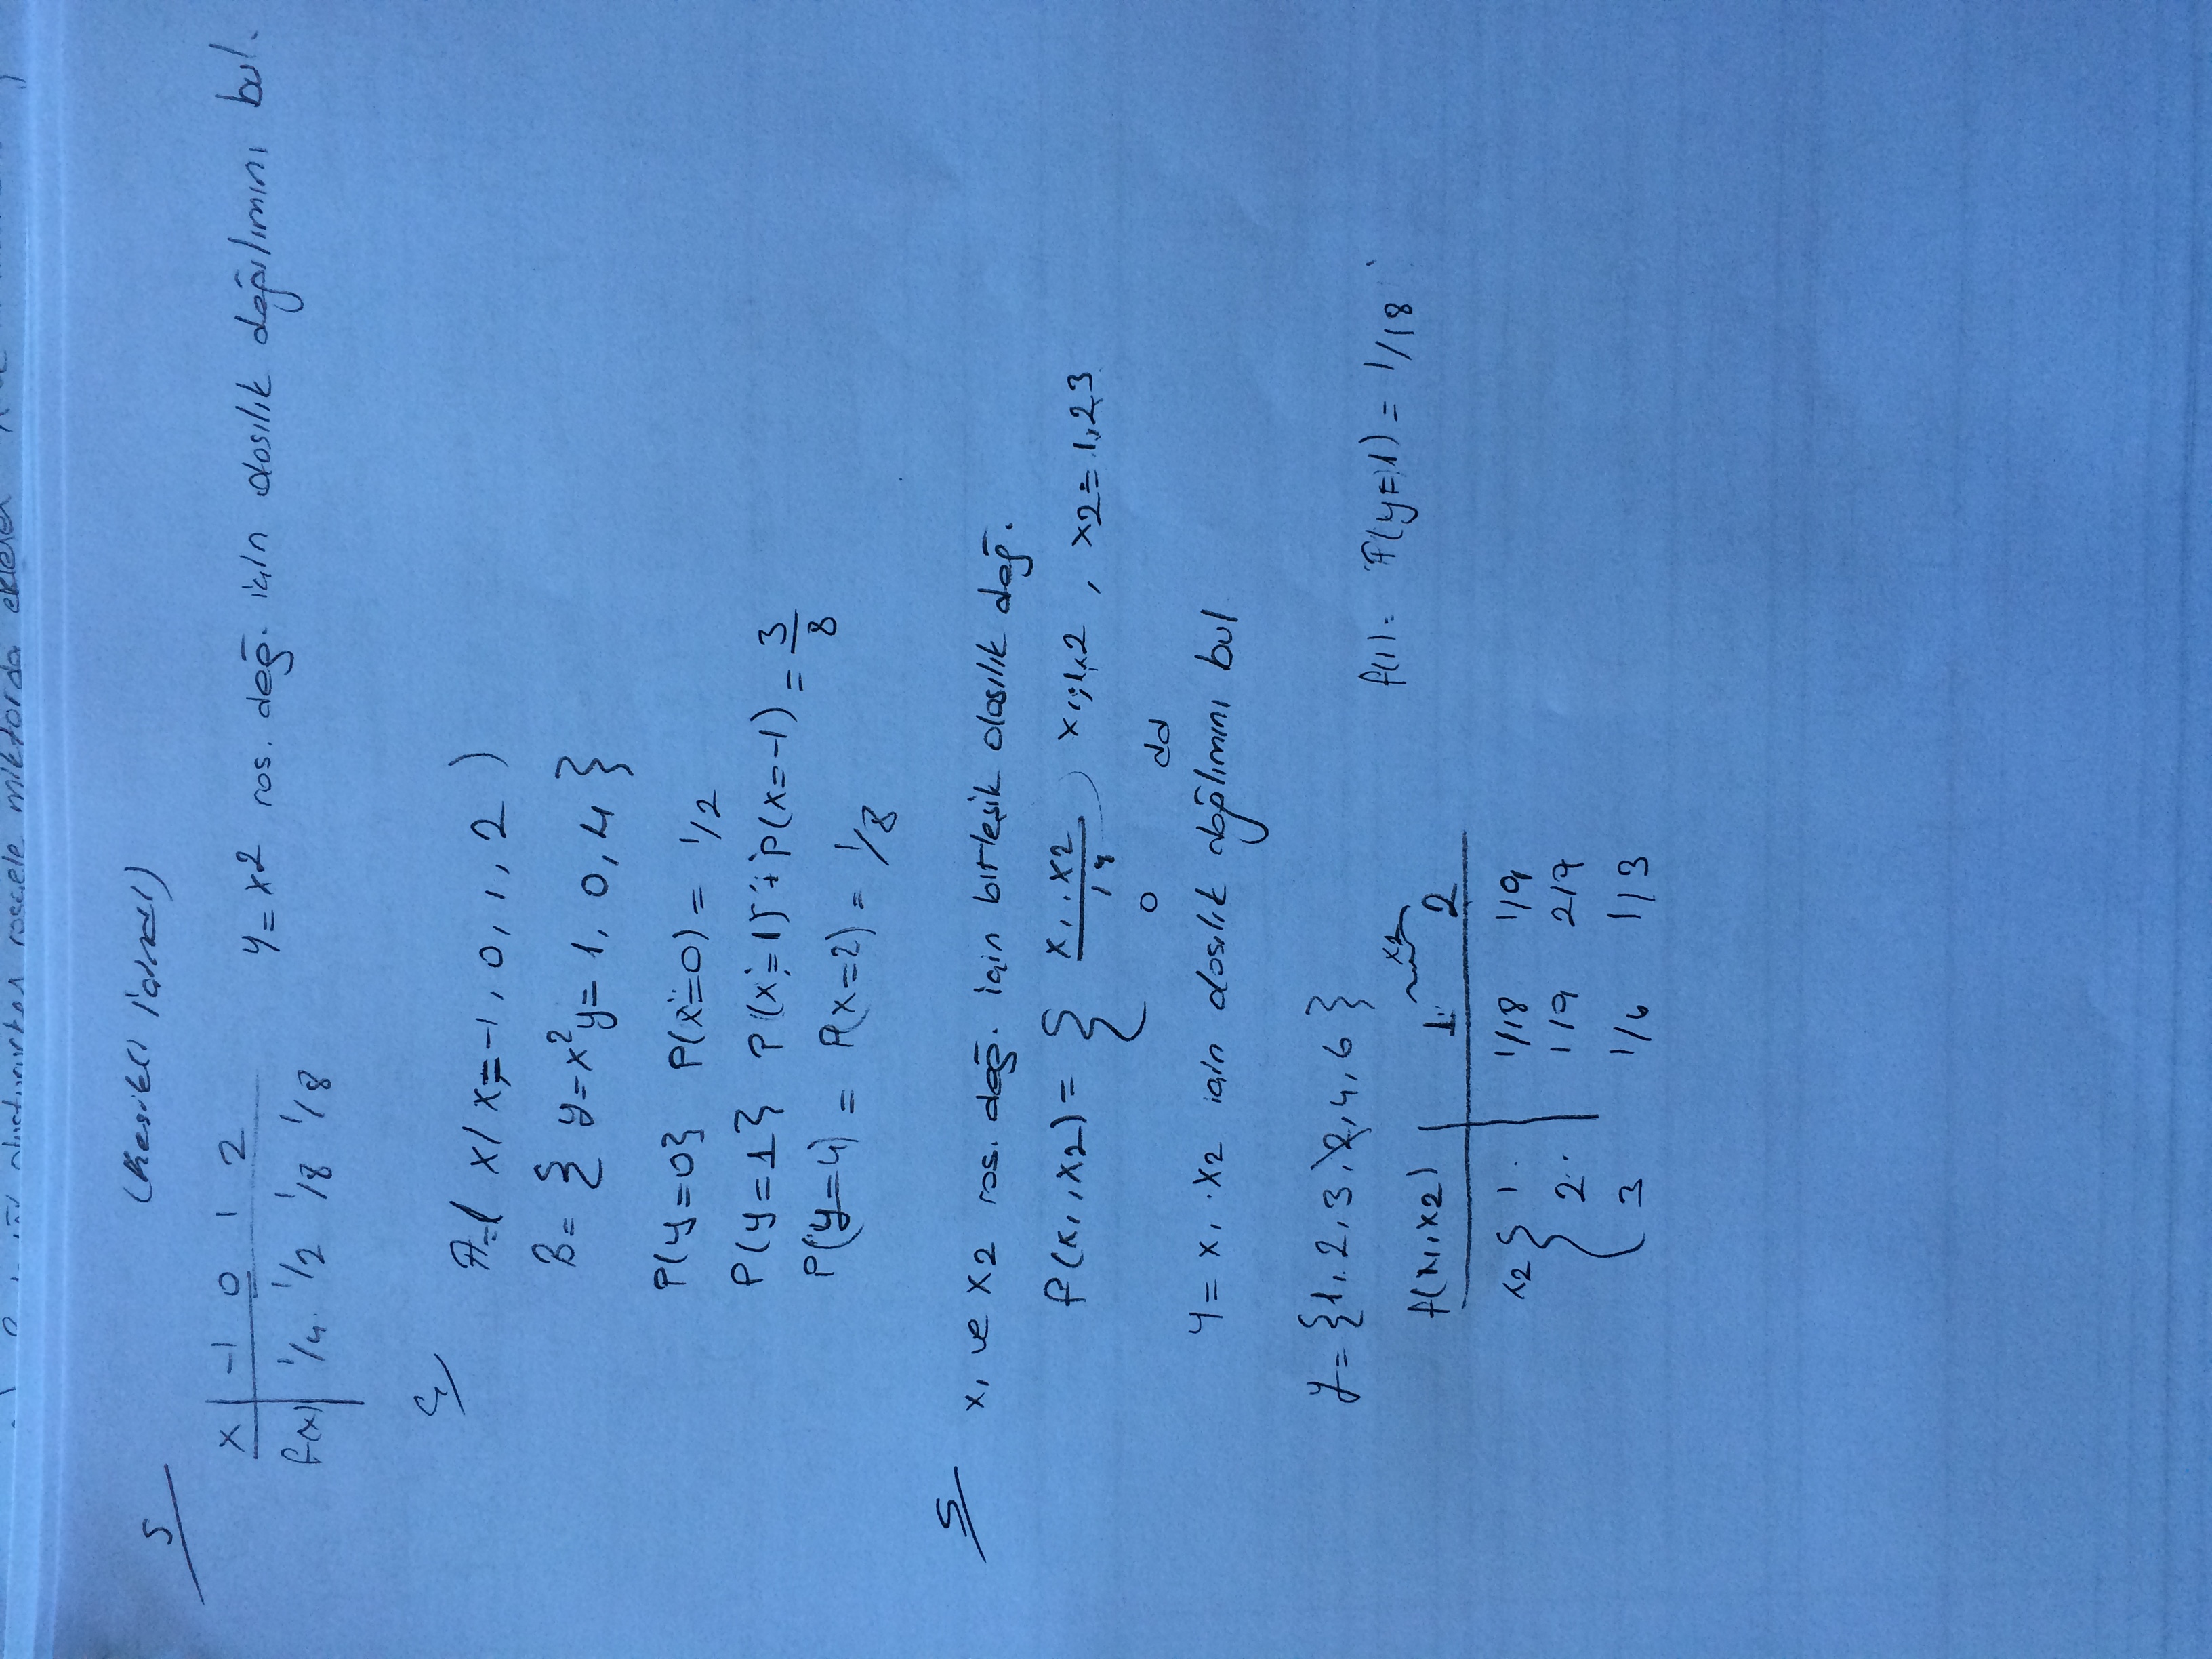 oluştururken rasgele miktarda eklenen
(Kesikli için)
S
x | -1 0 1 2
f(x) | 1/4 1/2 1/8 1/8
y=x2 ras. değ. için olasılık dağılımını bul.
Ç
A={ x / x=-1, 0, 1, 2 )
B= { y=x²y= 1, 0, 4 }
P(y=0} P(x=0) = 1/2
P(y=1} P(x=1) + P(x=-1) = 3/8
P(y=4) = P(x=2) = 1/8
S
x1 ve x2 ras. değ. için birleşik olasılık dağ.
f(x1,x2) = { x1.x2/18 , x1=1,2 , x2=1,23
0 dd
y= x1.x2 için olasılık dağlımını bul
y= {1, 2, 3, 2, 4, 6 }
f(1)= P(y=1) = 1/18
x1
f(x1,x2) | 1 2
x2 { 1 | 1/18 1/9
2 | 1/9 2/9
3 1/6 1/3